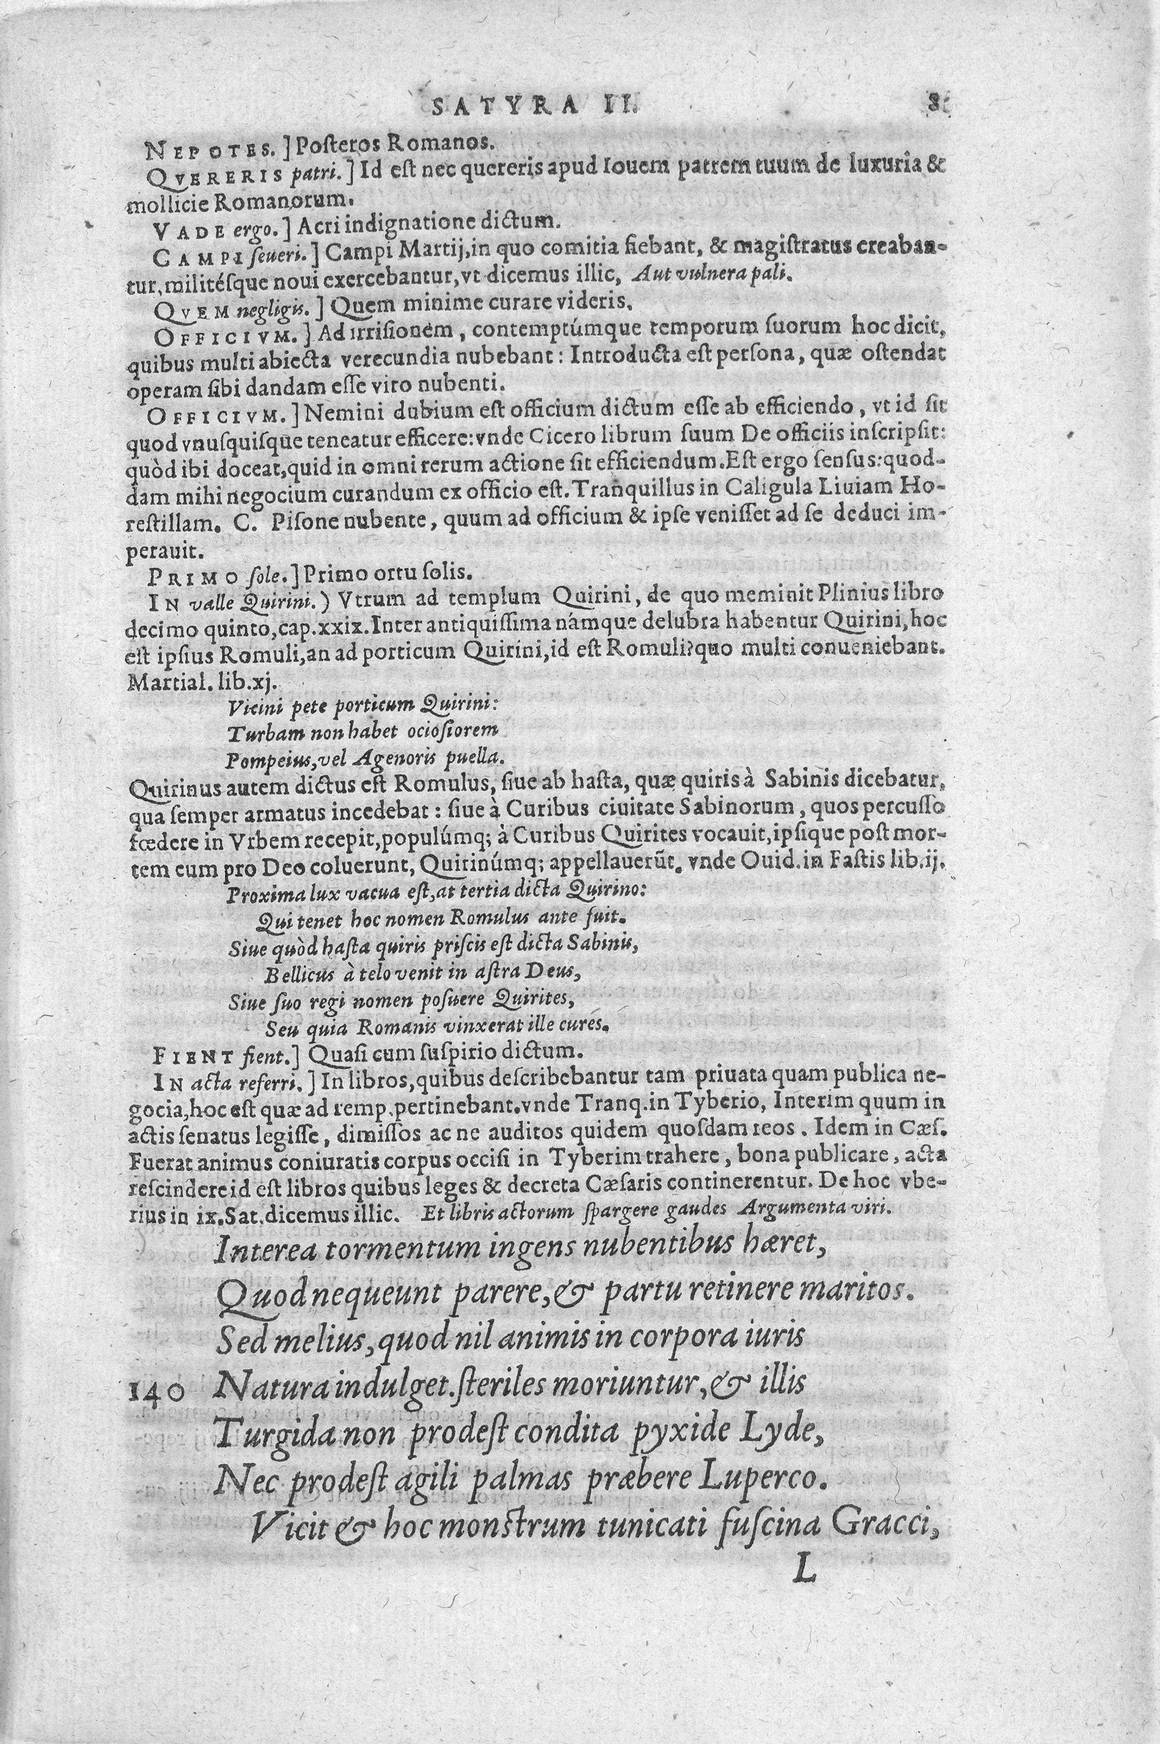 SATYRA II.
NEPOTES.] Posteros Romanos.
QVERERIS patri.] Id est nec quereris apud Iouem patrem tuum de luxuria &
mollicie Romanorum.
VADE ergo.] Acri indignatione dictum.
CAMPI seueri.] Campi Martij,in quo comitia fiebant, & magistratus creaban-
tur,militésque noui exercebantur,vt dicemus illic, Aut vulnera pali.
QVEM negligis.] Quem minime curare videris.
OFFICIVM.] Ad irrisionem, contemptúmque temporum suorum hoc dicit,
quibus multi abiecta verecundia nubebant: Introducta est persona, quæ ostendat
operam sibi dandam esse viro nubenti.
OFFICIVM.] Nemini dubium est officium dictum esse ab efficiendo, vt id sit
quod vnusquisque teneatur efficere:vnde Cicero librum suum De officiis inscripsit:
quòd ibi doceat,quid in omni rerum actione sit efficiendum.Est ergo sensus:quod-
dam mihi negocium curandum ex officio est.Tranquillus in Caligula Liuiam Ho-
restillam. C. Pisone nubente, quum ad officium & ipse venisset ad se deduci im-
perauit.
PRIMO sole.] Primo ortu solis.
IN valle Quirini.) Vtrum ad templum Quirini, de quo meminit Plinius libro
decimo quinto,cap.xxix.Inter antiquissima námque delubra habentur Quirini,hoc
est ipsius Romuli,an ad porticum Quirini,id est Romuli?quo multi conueniebant.
Martial. lib.xj.
Vicini pete porticum Quirini:
Turbam non habet ociosiorem
Pompeius,vel Agenoris puella.
Quirinus autem dictus est Romulus, siue ab hasta, quæ quiris à Sabinis dicebatur,
qua semper armatus incedebat: siue à Curibus ciuitate Sabinorum, quos percusso
fœdere in Vrbem recepit,populúmq; à Curibus Quirites vocauit,ipsique post mor-
tem eum pro Deo coluerunt, Quirinúmq; appellauerũt. vnde Ouid.in Fastis lib.ij.
Proxima lux vacua est,at tertia dicta Quirino:
Qui tenet hoc nomen Romulus ante fuit.
Siue quòd hasta quiris priscis est dicta Sabinis,
Bellicus à telo venit in astra Deus,
Siue suo regi nomen posuere Quirites,
Seu quia Romanis vinxerat ille cures.
FIENT fient.] Quasi cum suspirio dictum.
IN acta referri.] In libros,quibus describebantur tam priuata quam publica ne-
gocia,hoc est quæ ad remp.pertinebant.vnde Tranq.in Tyberio, Interim quum in
actis senatus legisse, dimissos ac ne auditos quidem quosdam reos. Idem in Cæs.
Fuerat animus coniuratis corpus occisi in Tyberim trahere, bona publicare, acta
rescindere id est libros quibus leges & decreta Cæsaris continerentur. De hoc vbe-
rius in ix.Sat.dicemus illic. Et libris actorum spargere gaudes Argumenta viri.
Interea tormentum ingens nubentibus hæret,
Quod nequeunt parere,& partu retinere maritos.
Sed melius,quod nil animis in corpora iuris
140 Natura indulget.steriles moriuntur,& illis
Turgida non prodest condita pyxide Lyde,
Nec prodest agili palmas præbere Luperco.
Vicit & hoc monstrum tunicati fuscina Gracci,
L